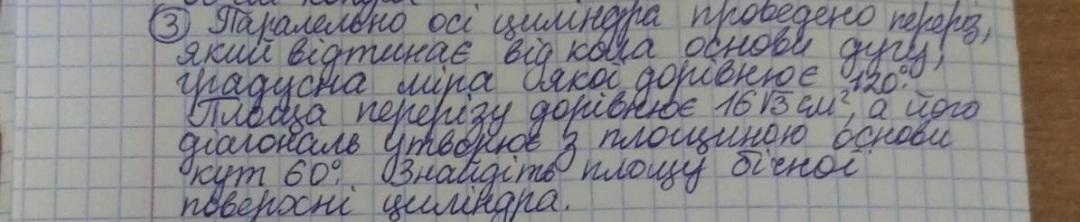 ③ Паралельно осі циліндра проведено переріз,
який відтинає від кола основи дугу,
градусна міра якої дорівнює 120°.
Площа перерізу дорівнює 16√3 см², а його
діагональ утворює з площиною основи
кут 60°. Знайдіть площу бічної
поверхні циліндра.